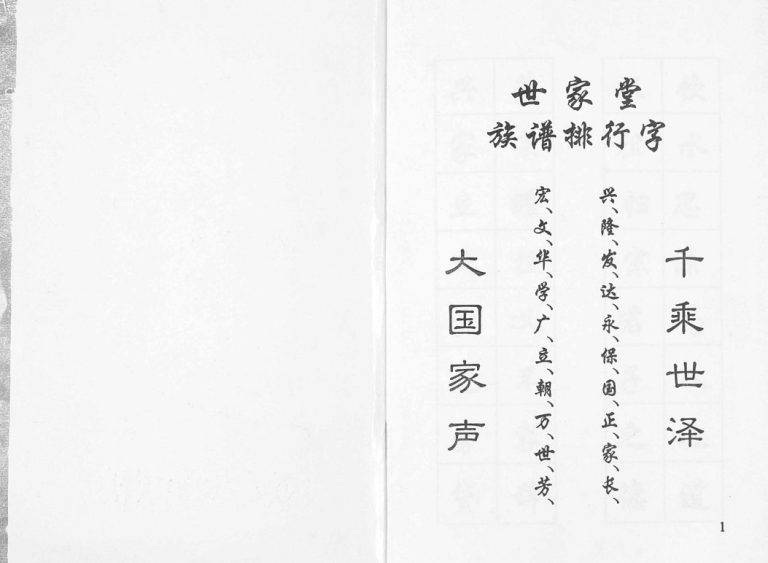 世家堂
族谱排行字
千乘世泽
兴、隆、发、达、永、保、国、正、家、长、
宏、文、华、学、广、立、朝、万、世、芳、
大国家声
1